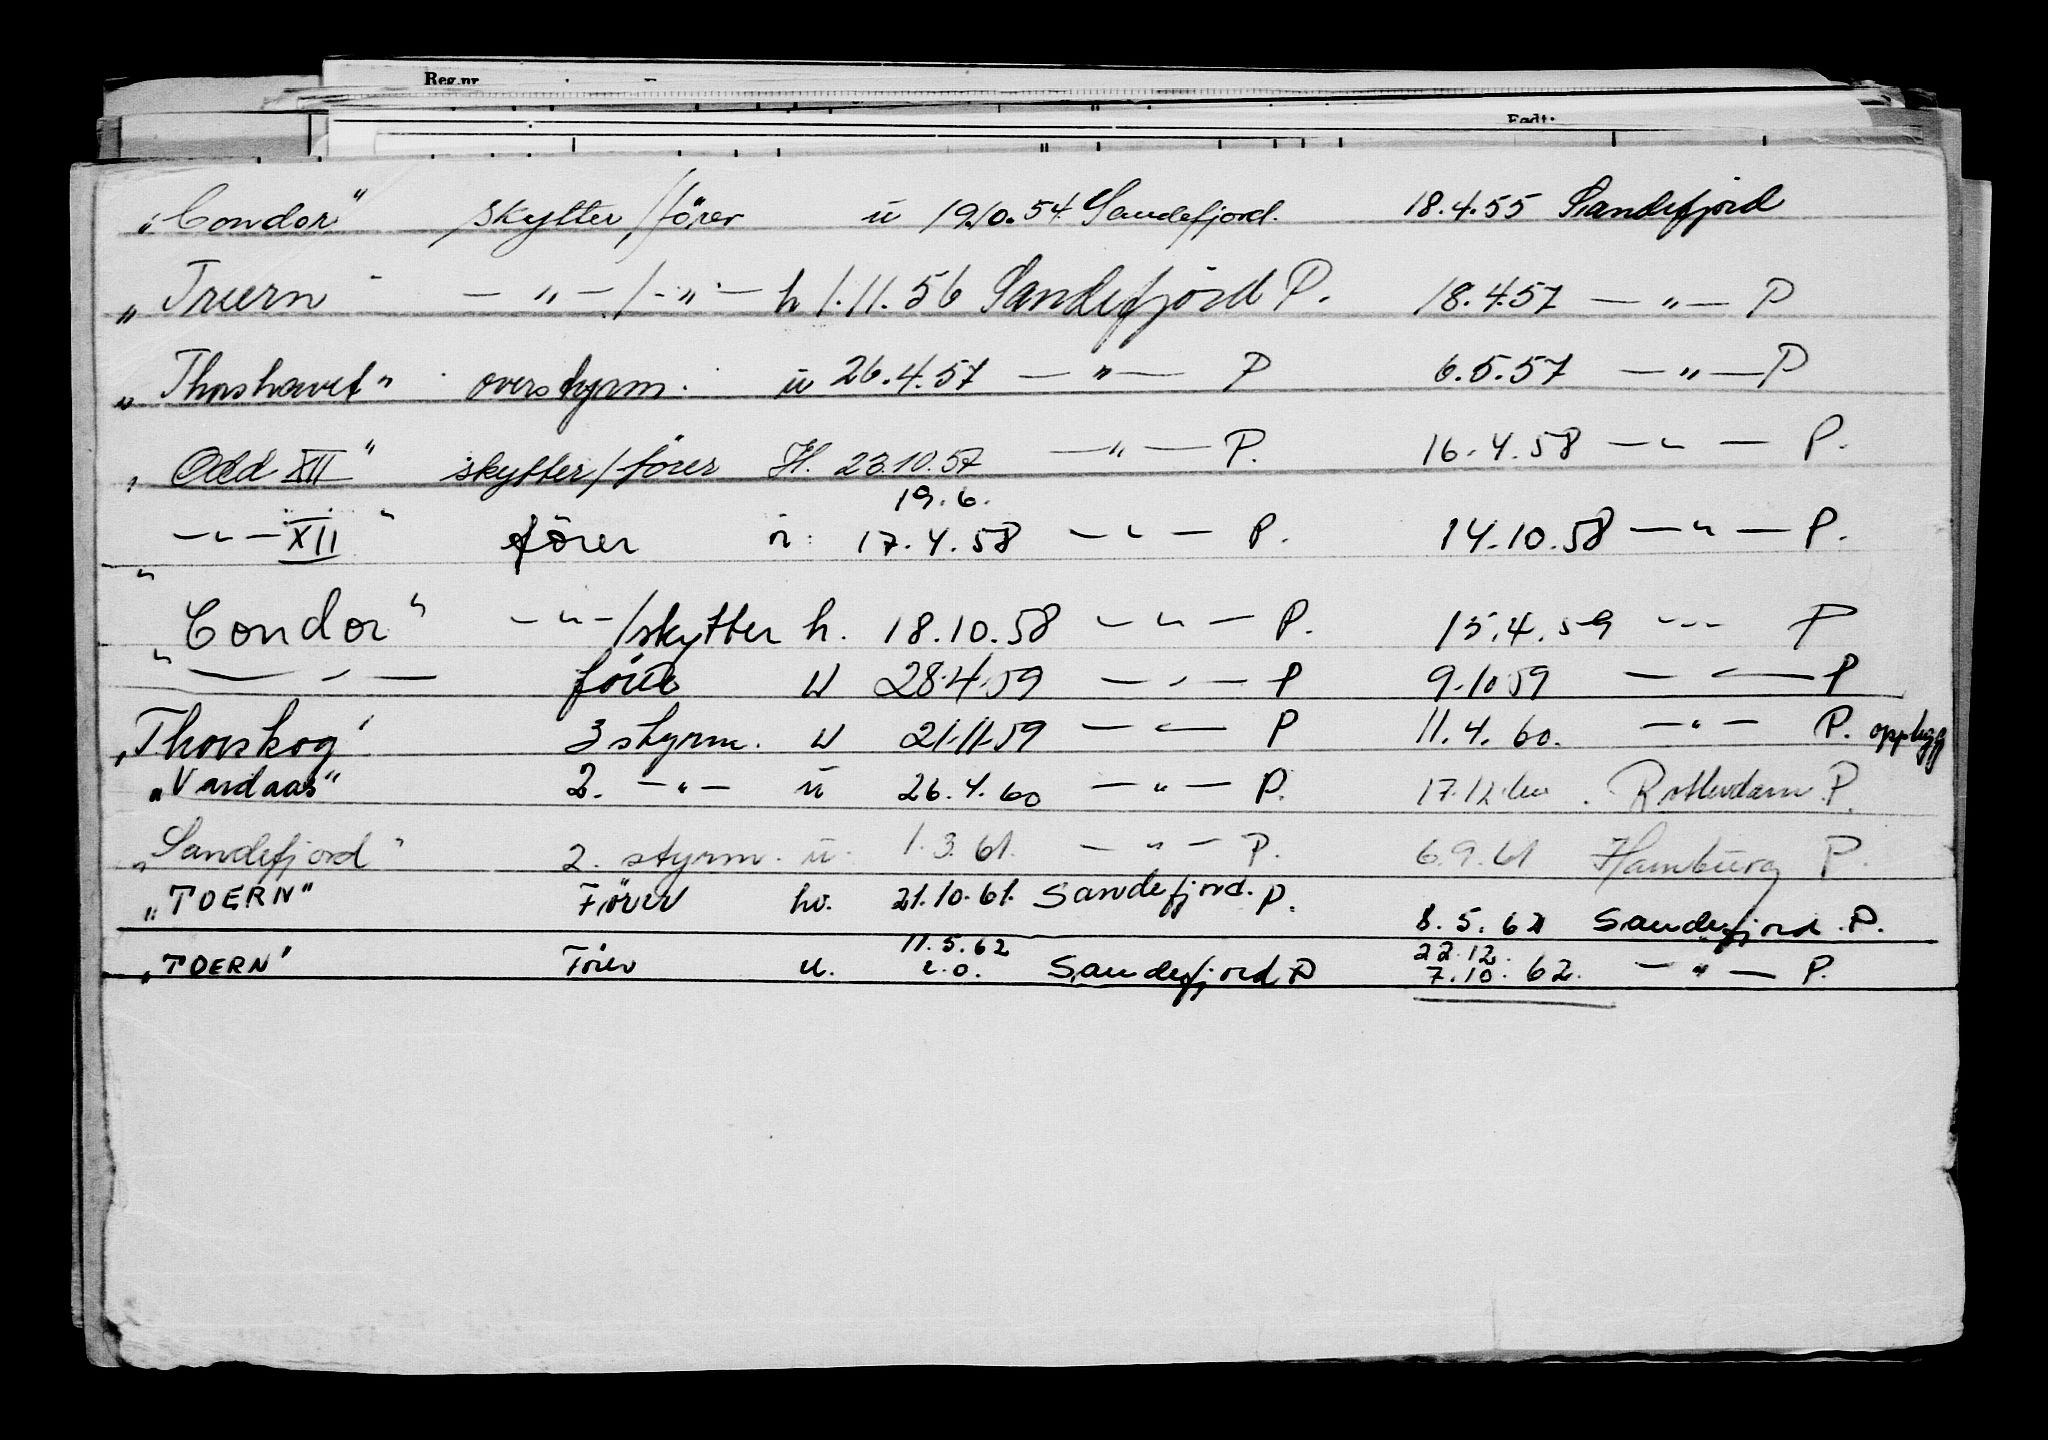 Reg.nr.
Født:
„Condor" skytter/fører u 19.10.54 Sandefjord. 18.4.55 Sandefjord
„Truern - — " — / - " - — h 1.11.56 Sandefjord P. 18.4.57 — " — P
„Thorshavet" overstyrm. u 26.4.57 — " — P 6.5.57 — " — P
„Odd XII" skytter/fører H. 23.10.57 — " — P. 16.4.58 — " — P.
19.6.
— " — XII " fører u: 17.4.58 — " — P. 14.10.58 — " — P.
„Condor" — " — /skytter h. 18.10.58 — " — P. 15.4.59 - - - P
„ — " — fører u 28.4.59 — " — P 9.10.59 — " — P
„Thorskog" 3 styrm. u 21.11.59 — " — P 11.4.60. — " — P. opplegg
„Vardaas" 2. — " — u 26.4.60 — " — P. 17.12.60 . Rotterdam P.
„Sandefjord" 2. styrm. u. 1.3.61. — " — P. 6.9.61 Hamburg P.
„TOERN" Fører hv. 21.10.61. Sandefjord. P. 8.5.62 Sandefjord. P.
11.5.62 22.12.
„TOERN" Fører u. Sandefjord P 7.10.62. — " — P.